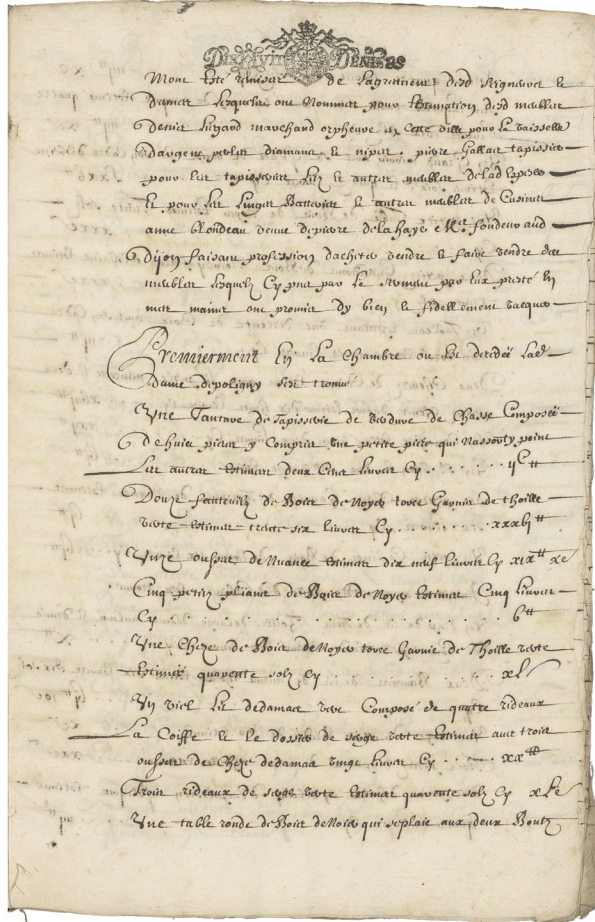 DIX HVIT DENIERS
Mont esté remises de lagreement desd seigneurs et
dames lesquelz ont Nommez pour Estimation desd meubles
Denier Liegard marchand orpheuve en Cette ville pour La vaisselle
dargent perles diamans et nipes. pierre Gallait tapissier
pour les tapisseries lits et autres meubles de lad espece
Et pour les Linges Batterie et autres meubles de Cuisine
anne Blondeau veuve de pierre delahaye Mtre fondeur aud
Dijon faisant profession dachetter vendre et faire vendre des
meubles lesquelz Cy par le serment par Eux presté En
mes mains ont promis dy bien et fidellement vacquer
Premierment En La Chambre ou est decedée Lad
Dame depoligny sest trouvé
Une Tanture de Tapisserie de verdure de Chasse Composée
de huict pieces y Compris une petite piece qui Nassorty point
Les autres Estimez deux Cent livres Cy . . . . . . IIC tt
Douze fauteuilz de Bois de Noyer torce Garnis de thoille
verte Estimez trente six livres Cy . . . . . . . xxxvj tt
Unze housses de Nuance Estimez dix neuf livres Cy xix tt
Cinq petits plians de Bois de Noyer Estimez Cinq livres
Cy . . . . . . . . . . . . . . . . . . . . tt
Une Cheze de Bois de Noyer torce Garnie de Thoille verte
Estimée quarente solz Cy . . . . . . . xL s
Un viel Lit dedamas vert Composé de quatre rideaux
La Coiffe et le dossier de serge verte Estimez avec trois
housses de Cheze dedamas vingt livres Cy . . . xx tt
Trois rideaux de serge verte Estimez quarente solz Cy xL s
Une table ronde de Bois de Noier qui seplaie aux deux Boutz